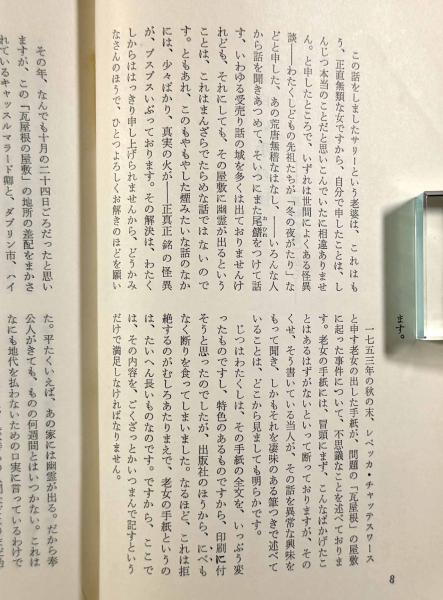 この話をしましたサリーという老婆は、これはも
う、正直無類な女ですから、自分で申したことは、し
んじつ本当のことだと思いこんでいたに相違ありませ
ん。と申したところで、いずれは世間によくある怪異
談――わたくしどもの先祖たちが「冬の夜がたり」な
どと申した、あの荒唐無稽なはなし、――いろんな人
から話を聞きあつめて、そいつにまた尾鰭をつけて話
す、いわゆる受売り話の域を多くは出ておりませんけ
れども、それにしても、その屋敷に幽霊が出るという
ことは、これはまんざらでたらめな話ではないので
す。ともあれ、このもやもやした煙みたいな話のなか
には、少々ばかり、真実の火が――正真正銘の怪異
が、ブスブスいぶっております。その解決は、わたく
しからははっきり申し上げられませんから、どうかみ
なさんのほうで、ひとつよろしくお解きのほどを願い
ます。
一七五三年の秋の末、レベッカ・チャッテスワース
と申す老女の出した手紙が、問題の「瓦屋根」の屋敷
に起った事件について、不思議なことを述べておりま
す。老女の手紙には、冒頭にまず、こんなばかげたこ
とはあるはずがないといって断っておりますが、その
くせ、そう書いている当人が、その話を異常な興味を
もって聞き、しかもそれを凄味のある筆つきで述べて
いることは、どこから見ましても明らかです。
じつはわたくしは、その手紙の全文を、いっぷう変
ったものですし、特色のあるものですから、印刷に付
そうと思ったのでしたが、出版社のほうから、にべも
なく断りを食ってしまいました。なるほど、これは拒
絶するのがむしろあたりまえで、老女の手紙というの
は、たいへん長いものなのです。ですから、ここで
は、その内容を、ごくざっとかいつまんで記すという
だけで満足しなければなりません。
8
その年、なんでも十月の二十四日ごろだったと思い
ますが、この「瓦屋根の屋敷」の地所の差配をまかさ
れているキャッスルマラード卿と、ダブリン市、ハイ
た。平たくいえば、あの家には幽霊が出る。だから奉
公人がきても、ものの何週間とはいつかない。これは
なにも地代を払わないための口実に言っているわけで